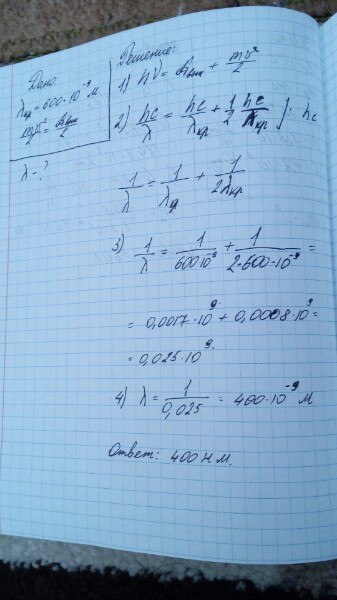 Дано:
λкр = 600·10⁻⁹ м
mv²/2 = Aвых/2
λ - ?
Решение:
1) hν = Aвых + mv²/2
2) hc/λ = hc/λкр + 1/2 hc/λкр ] : hc
1/λ = 1/λкр + 1/2λкр
3) 1/λ = 1/600·10⁻⁹ + 1/2·600·10⁻⁹ =
= 0,0017·10⁹ + 0,0008·10⁹ =
= 0,025·10⁹.
4) λ = 1/0,025 = 400·10⁻⁹ м
Ответ: 400 нм.